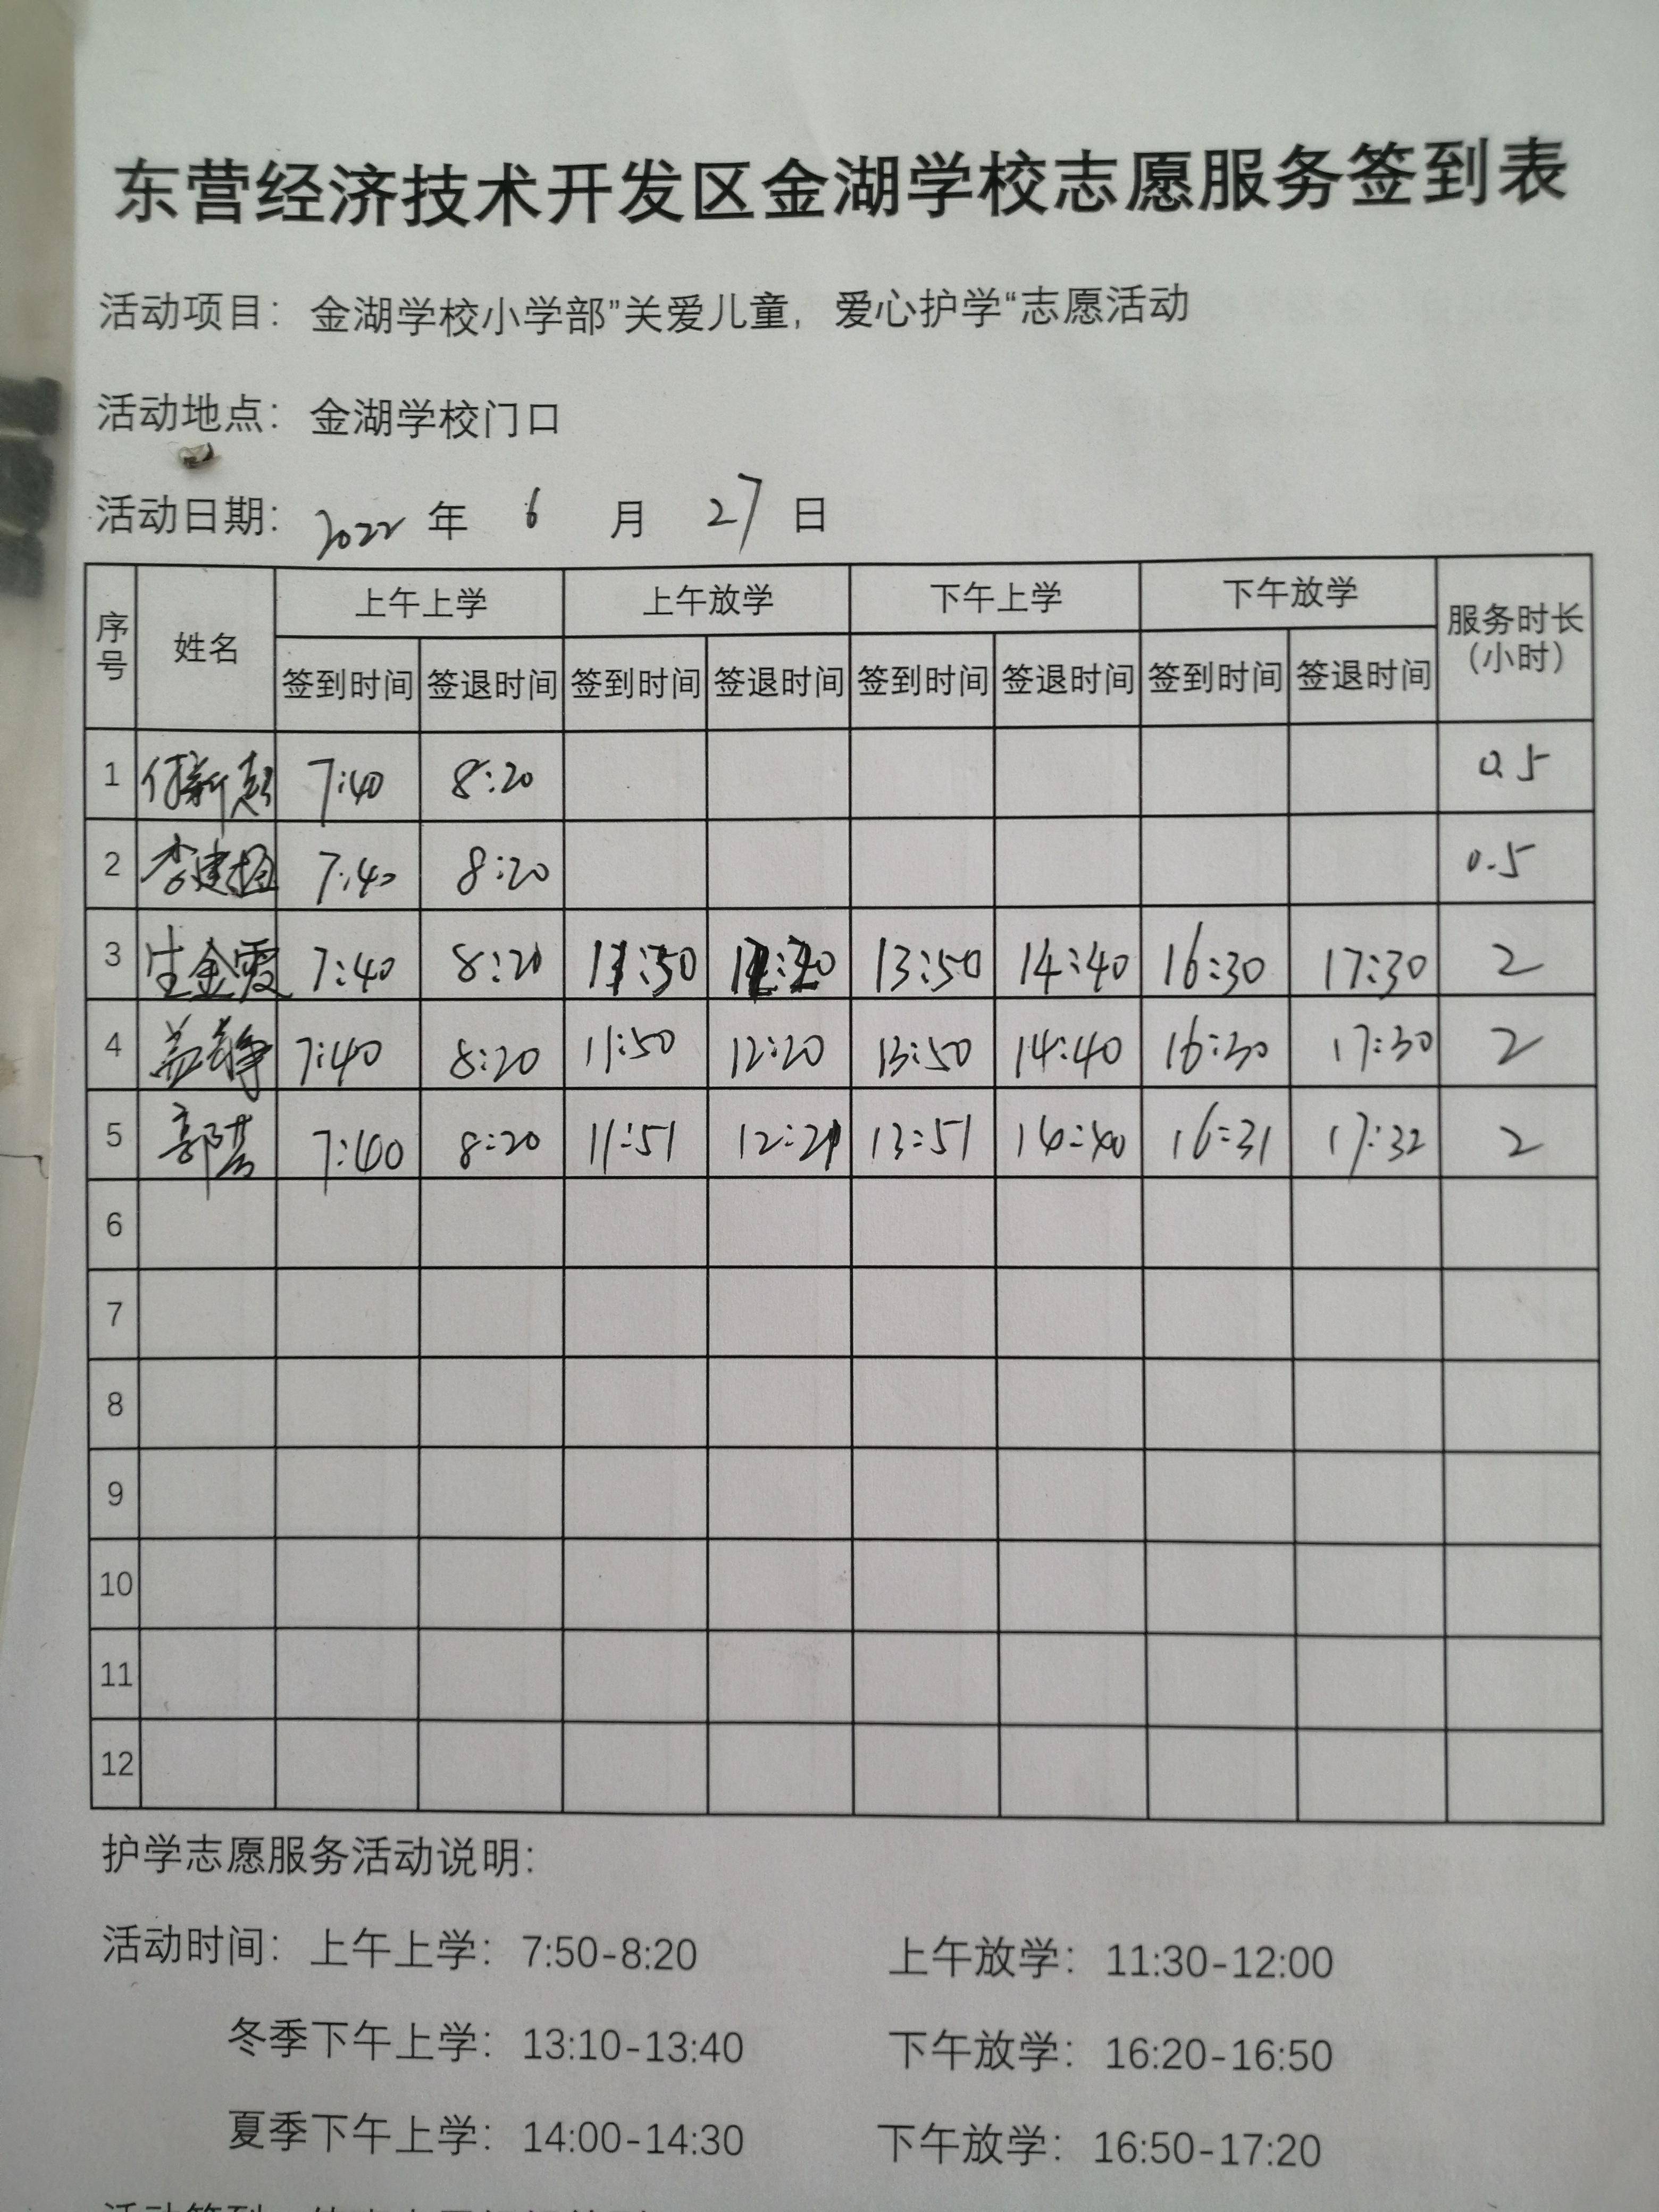 东营经济技术开发区金湖学校志愿服务签到表
活动项目：金湖学校小学部”关爱儿童，爱心护学“志愿活动
活动地点：金湖学校门口
活动日期：2022 年 6 月 27 日
序号 姓名 上午上学 上午放学 下午上学 下午放学 服务时长（小时）
签到时间 签退时间 签到时间 签退时间 签到时间 签退时间 签到时间 签退时间
1 7:40 8:20 0.5
2 李建 7:40 8:20 0.5
3 生金霞 7:40 8:20 11:50 12:20 13:50 14:40 16:30 17:30 2
4 盖静 7:40 8:20 11:50 12:20 13:50 14:40 16:30 17:30 2
5 郭 7:40 8:20 11:51 12:21 13:51 14:40 16:31 17:32 2
6
7
8
9
10
11
12
护学志愿服务活动说明：
活动时间：上午上学：7:50-8:20 上午放学：11:30-12:00
冬季下午上学：13:10-13:40 下午放学：16:20-16:50
夏季下午上学：14:00-14:30 下午放学：16:50-17:20